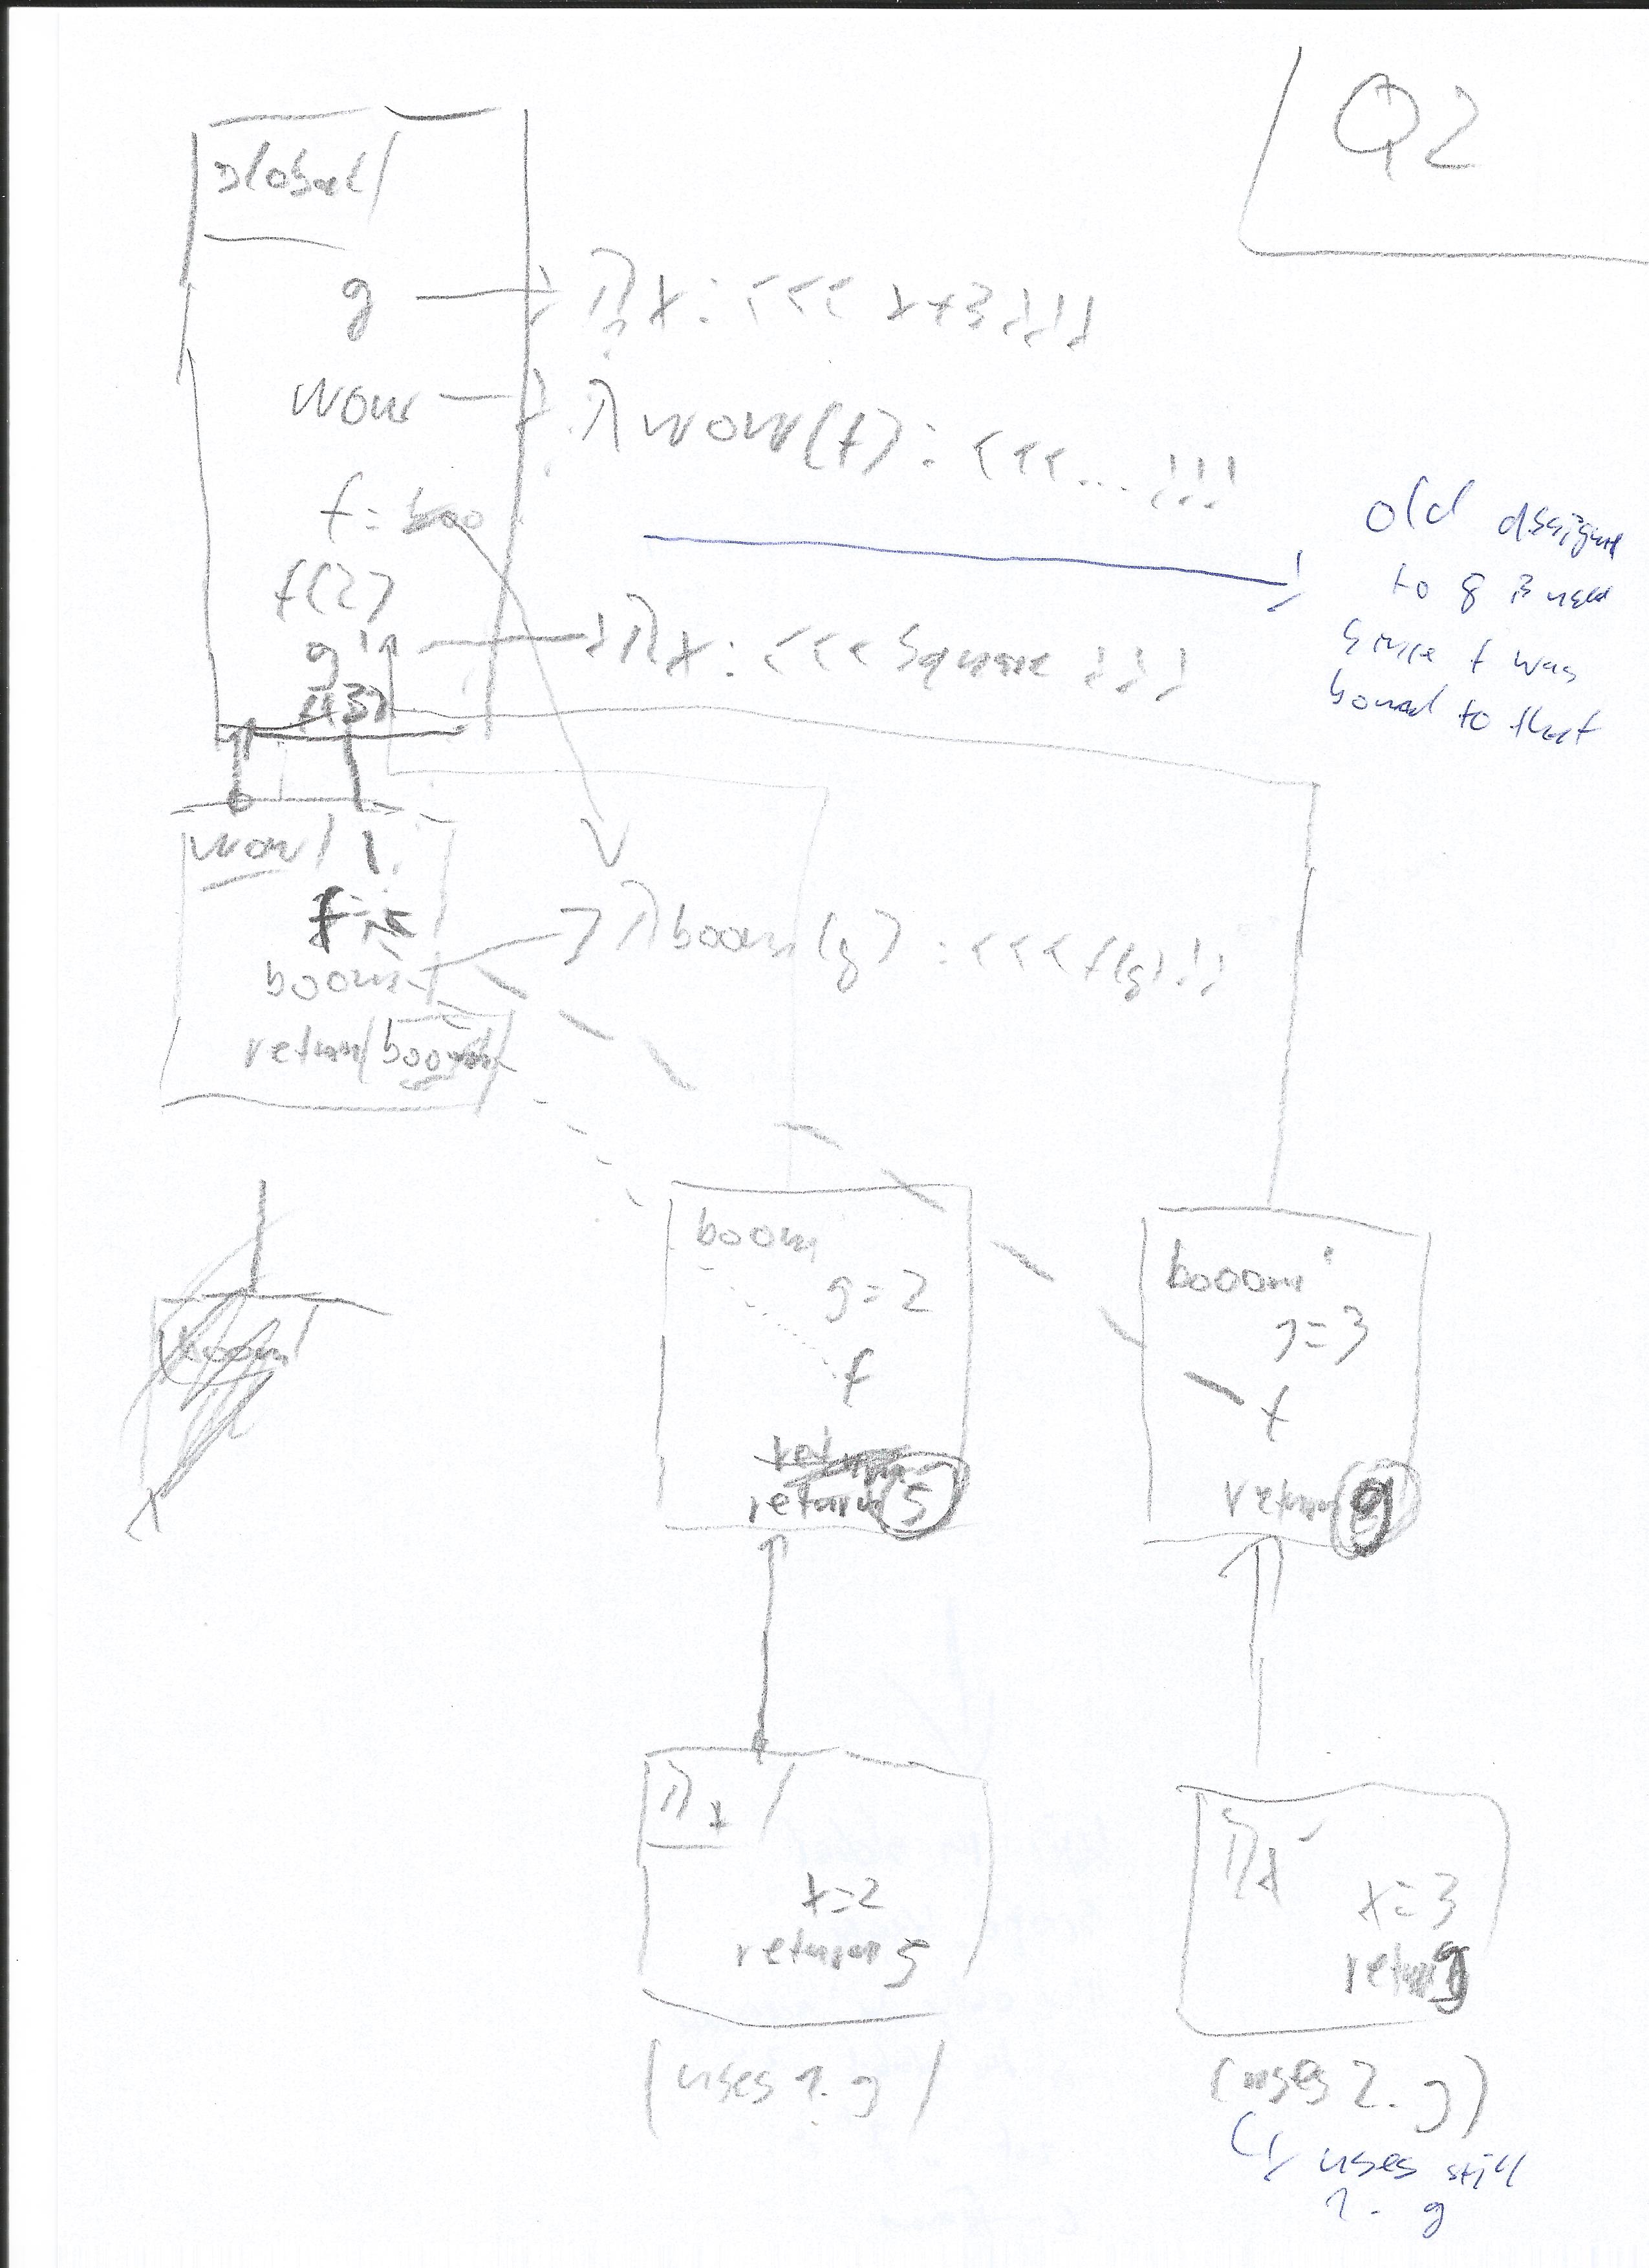 Q2
global
g → λx: <<< x+3 >>>
wow → λ wow(f): <<< ... >>>
f = boo
f(2)
g' → λx: <<< square >>>
f(3)
old assignm
to g is used
since f was
bound to that
wow
f =
boom → λ boom(g): <<< f(g) >>
return boom
boom
g = 2
f
return
return 5
booom'
g = 3
f
return 9
boom
λx
x = 2
return 5
(uses 1. g)
λx'
x = 3
return 9
(uses 2. g)
↳ uses still
1. g